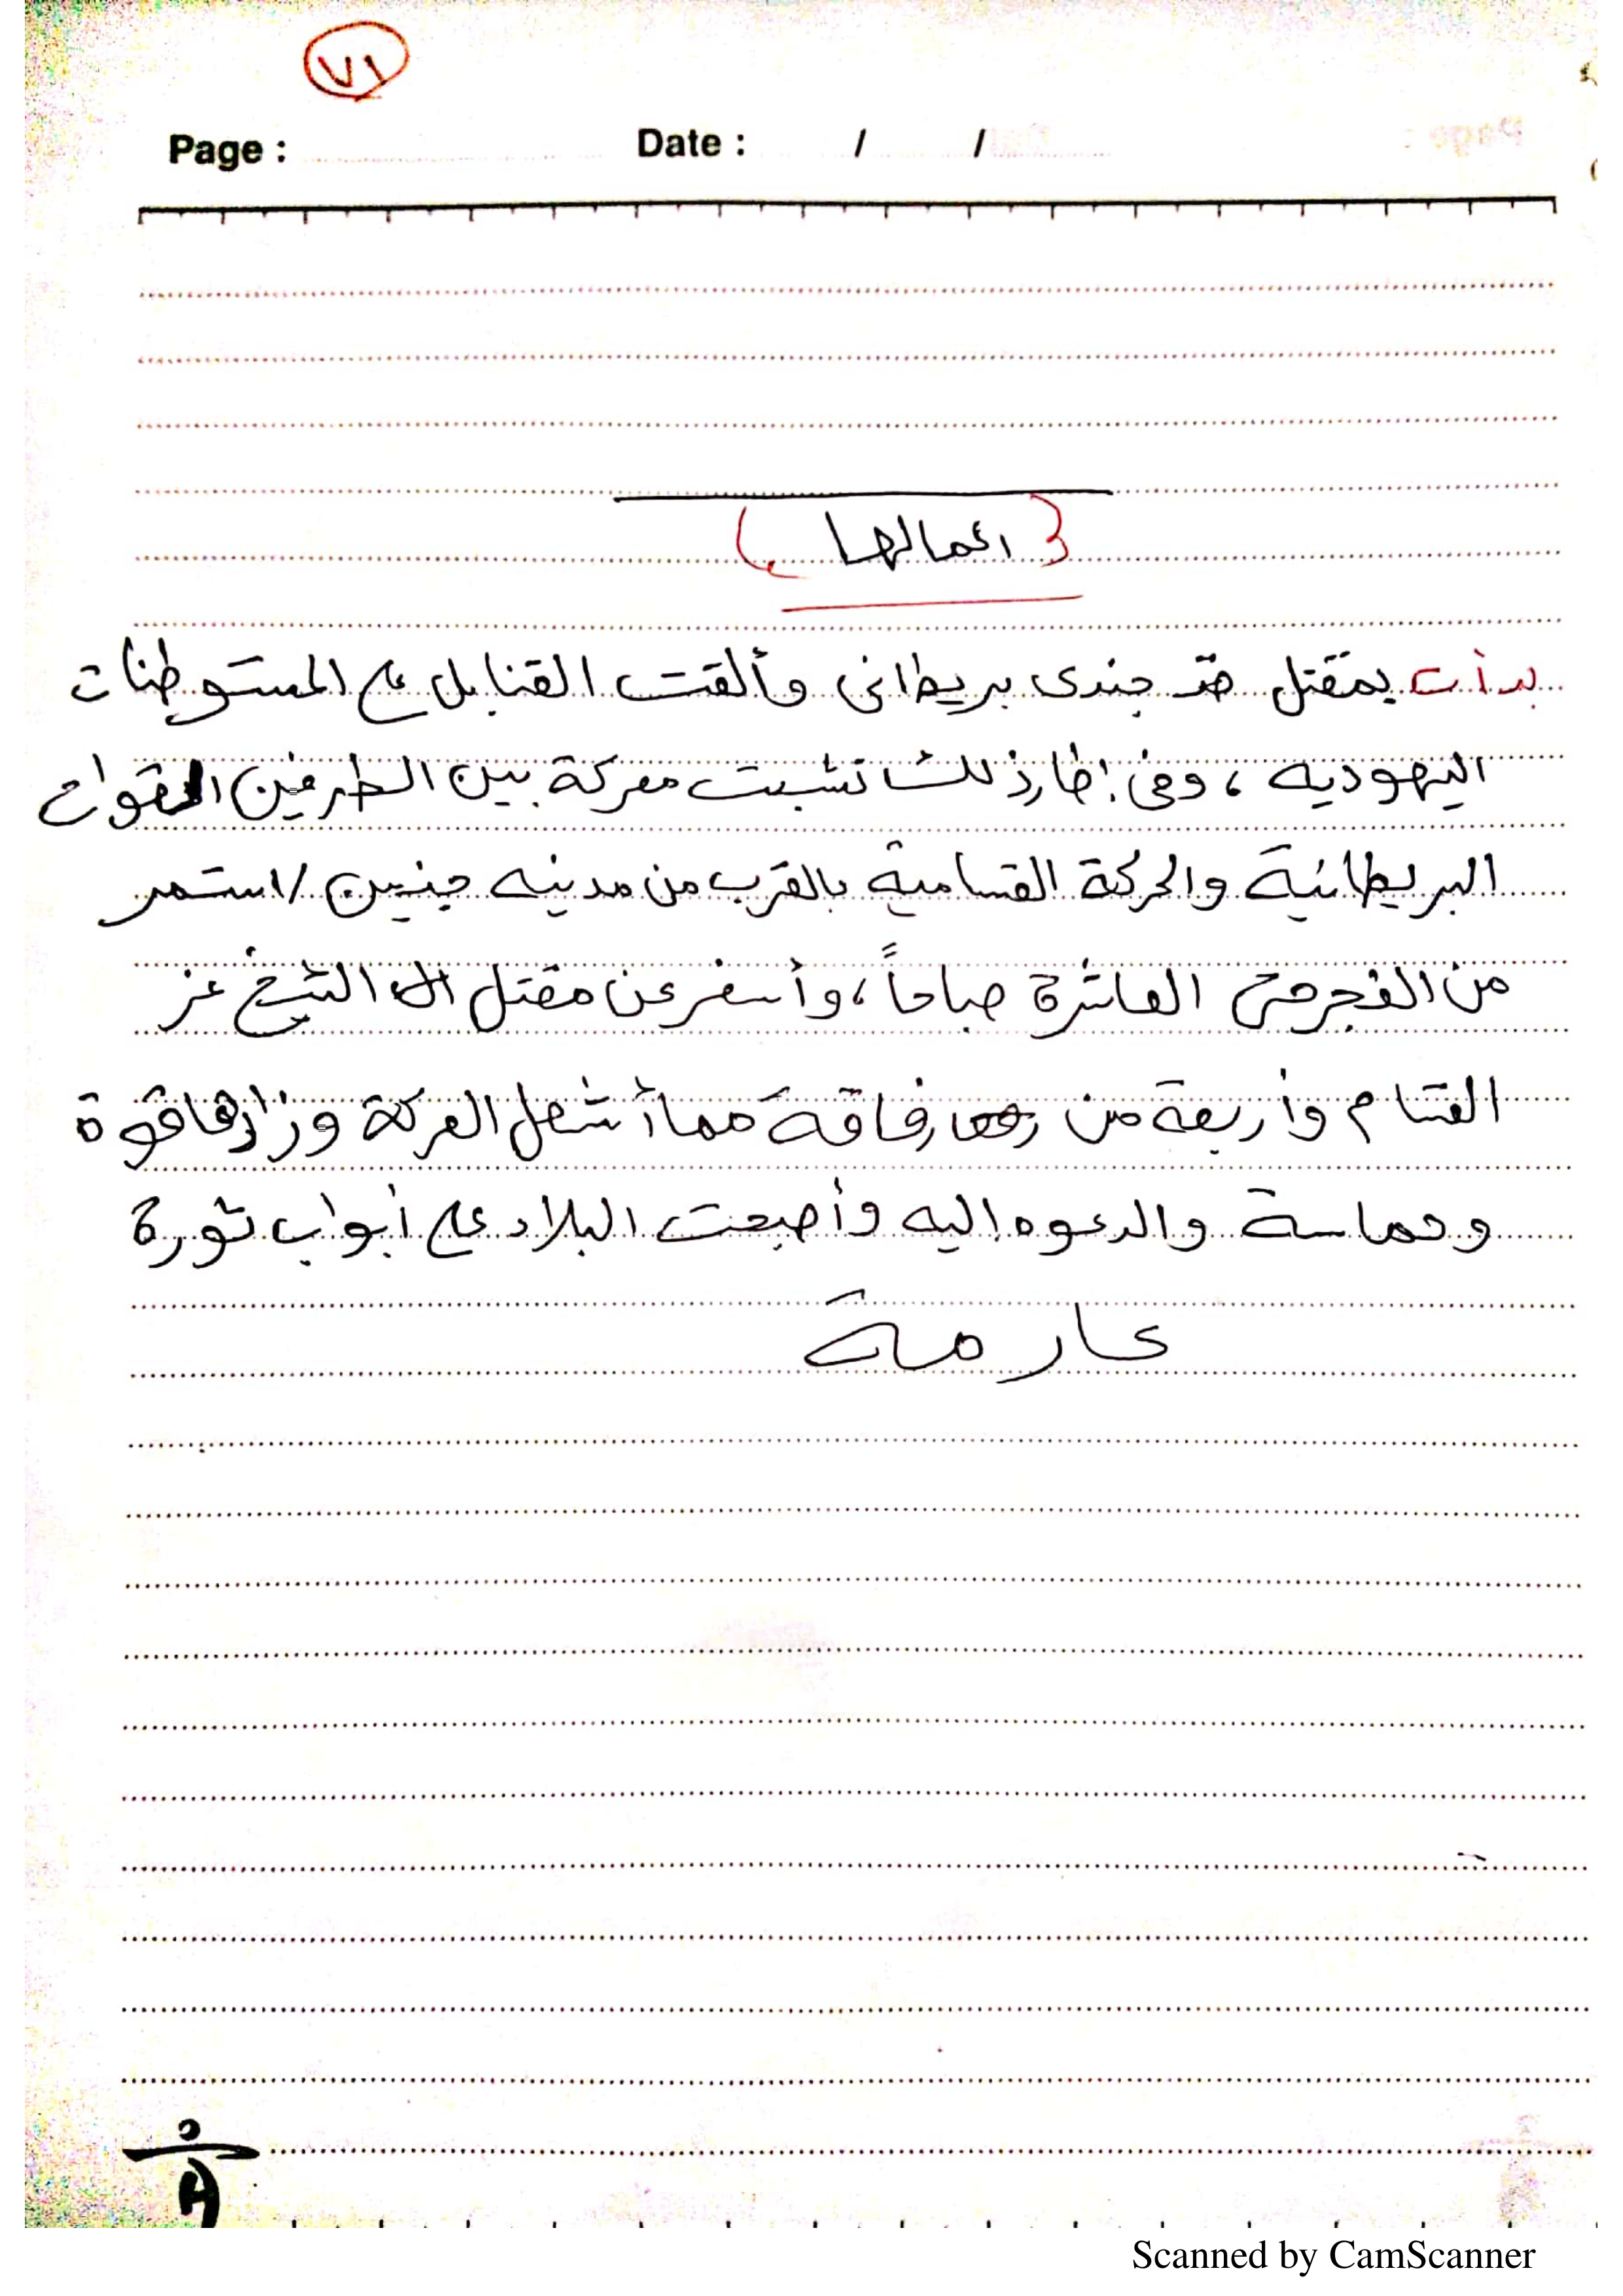 ٧١
Page : Date : / /
( اعمالها )
بدأت بمقتل جندى بريطانى وألقت القنابل على المستوطنات
اليهوديه ، وفى إطار ذلك نشبت معركة بين الطرفين القوات
البريطانية والحركة القسامية بالقرب من مدينه جنين / استمر
من الفجر حتى العاشرة صباحاً ، وأسفر عن مقتل الشيخ عز
القسام وأربعة من رفاقة مما أشعل المركة وزادها قوة
وحماسة والدعوه إليه وأصبحت البلاد على أبواب ثورة
عارمة
Scanned by CamScanner